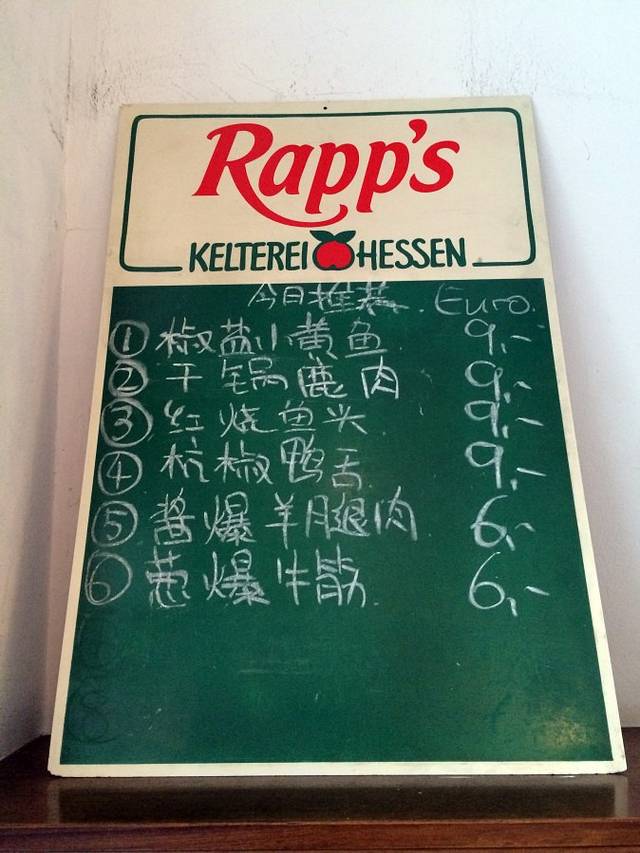 Rapp's
KELTEREI HESSEN
今日推荐. Euro.
① 椒盐小黄鱼 9,-
② 干锅鹿肉 9,-
③ 红烧鱼头 9,-
④ 杭椒鸭舌 9,-
⑤ 酱爆羊腿肉 6,-
⑥ 葱爆牛筋 6,-